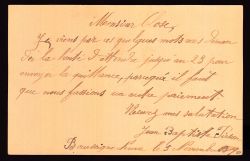 Monsieur
Je viens par ces quelques mots vous deman
der la bonté d'attendre jusqu'au 23 pour
envoyer la quittance, parceque il faut
que nous fassions un autre paiement.
Recevez mes salutation
Jean Baptiste